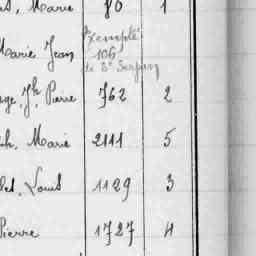 Marie 80 1
Marie Jean Exempté
106
de St Servan
Jh, Pierre 762 2
Marie 2111 5
Louis 1129 3
Pierre 1727 4